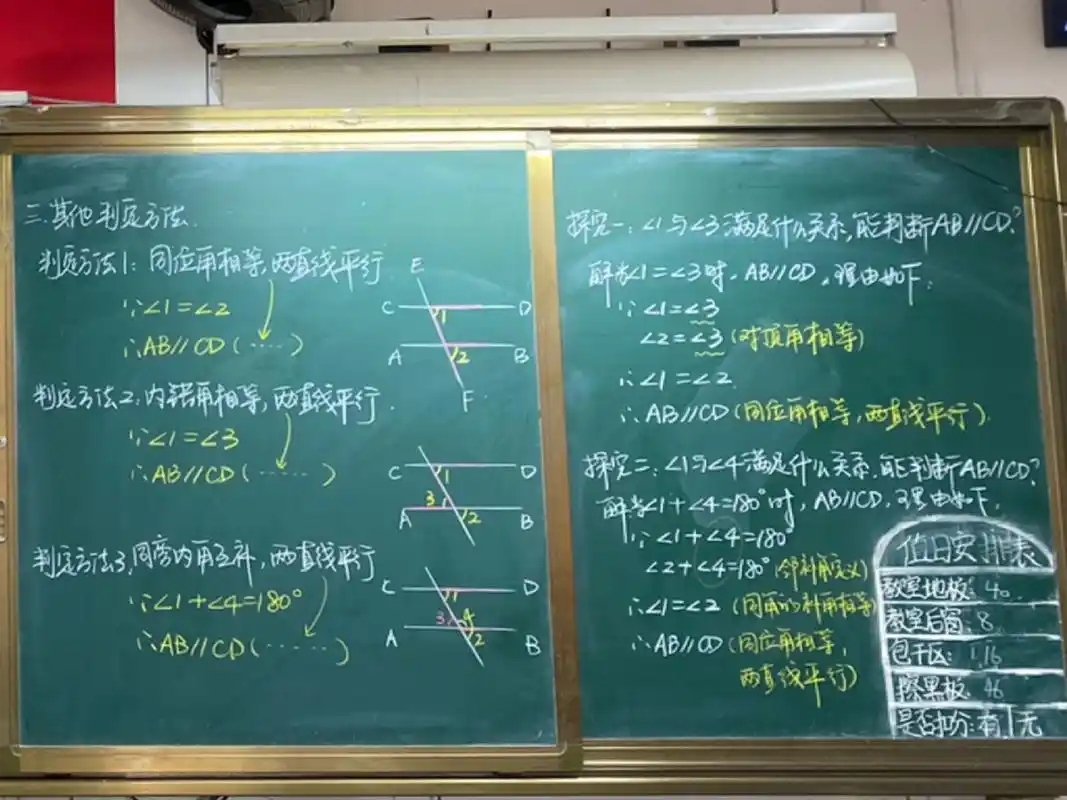 二.其他判定方法.
判定方法1:同位角相等,两直线平行.
∵∠1=∠2
∴AB//CD(····)
E
C
D
1
A
2
B
F
判定方法2:内错角相等,两直线平行.
∵∠1=∠3
∴AB//CD(······)
C
1
D
3
A
2
B
判定方法3,同旁内角互补,两直线平行
∵∠1+∠4=180°
∴AB//CD(······)
C
1
D
3
4
A
2
B
探究一:∠1与∠3满足什么关系,能判断AB//CD?
解:当∠1=∠3时,AB//CD,理由如下:
∵∠1=∠3
∠2=∠3(对顶角相等)
∴∠1=∠2.
∴AB//CD(同位角相等,两直线平行).
探究二:∠1与∠4满足什么关系,能判断AB//CD?
解:当∠1+∠4=180°时,AB//CD,理由如下,
∵∠1+∠4=180°
∠2+∠4=180°(邻补角定义)
∴∠1=∠2(同角的补角相等)
∴AB//CD(同位角相等,
两直线平行)
值日安排表
教室地板:40
教室后窗:8
包干区:1,16
擦黑板:46
是否扣分:有 无